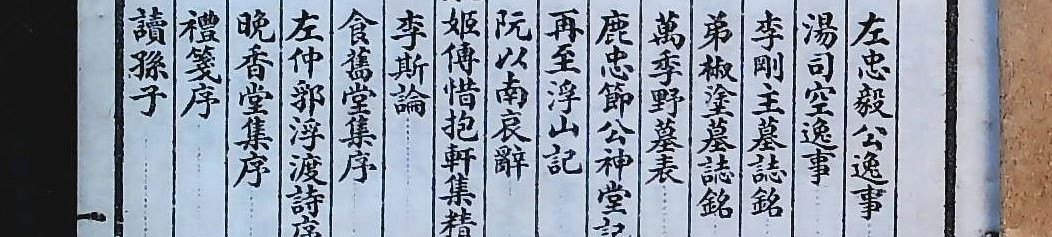 左忠毅公逸事
湯司空逸事
李剛主墓誌銘
弟椒塗墓誌銘
萬季野墓表
鹿忠節公神堂記
再至浮山記
阮以南哀辭
姬傳惜抱軒集精
李斯論
食舊堂集序
左仲郛浮渡詩序
晚香堂集序
禮箋序
讀孫子